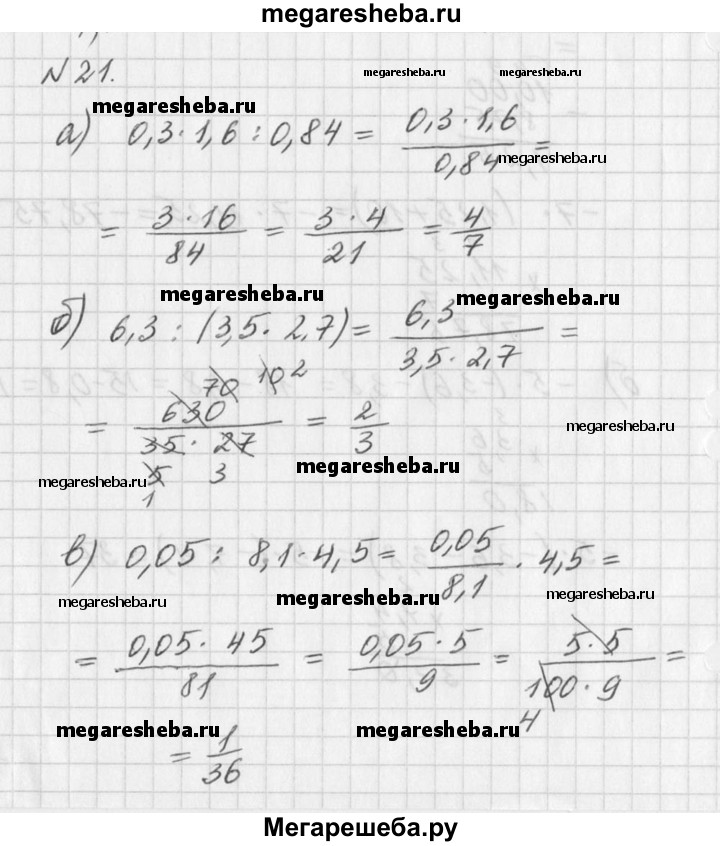 megaresheba.ru
N 21.
megaresheba.ru megaresheba.ru
megaresheba.ru
а) 0,3 · 1,6 : 0,84 = 0,3 · 1,6 / 0,84 =
megaresheba.ru
= 3 · 16 / 84 = 3 · 4 / 21 = 4/7
megaresheba.ru megaresheba.ru
б) 6,3 : (3,5 · 2,7) = 6,3 / 3,5 · 2,7 =
70 10 2
= 630 / 35 · 27 = 2/3
megaresheba.ru
5 3
1
megaresheba.ru megaresheba.ru
в) 0,05 : 8,1 · 4,5 = 0,05 / 8,1 · 4,5 =
megaresheba.ru megaresheba.ru megaresheba.ru
= 0,05 · 45 / 81 = 0,05 · 5 / 9 = 5 · 5 / 100 · 9 =
4
megaresheba.ru megaresheba.ru
= 1/36
Мегарешеба.ру